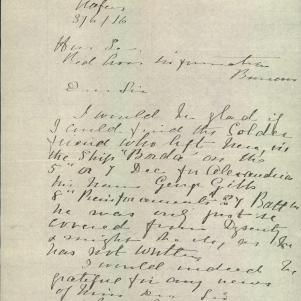 3/6/16
Hon Sec
Red Cross Information
Bureau
Dear Sir
I would be glad if
I could find the Soldier
friend who left here, in
the Ship "Borda" on the
5th or 7 Dec for Alexandria
his name George Gith
8th Reinforcements 27 Batt
he was only just re
covered from Dysentry
& might be ill, as he
has not written
I would indeed be
grateful for any news
of him Dear Sir